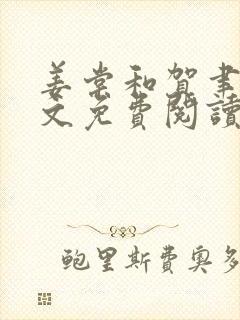 姜棠和賀聿
文免費閱讀
鲍里斯費奥多